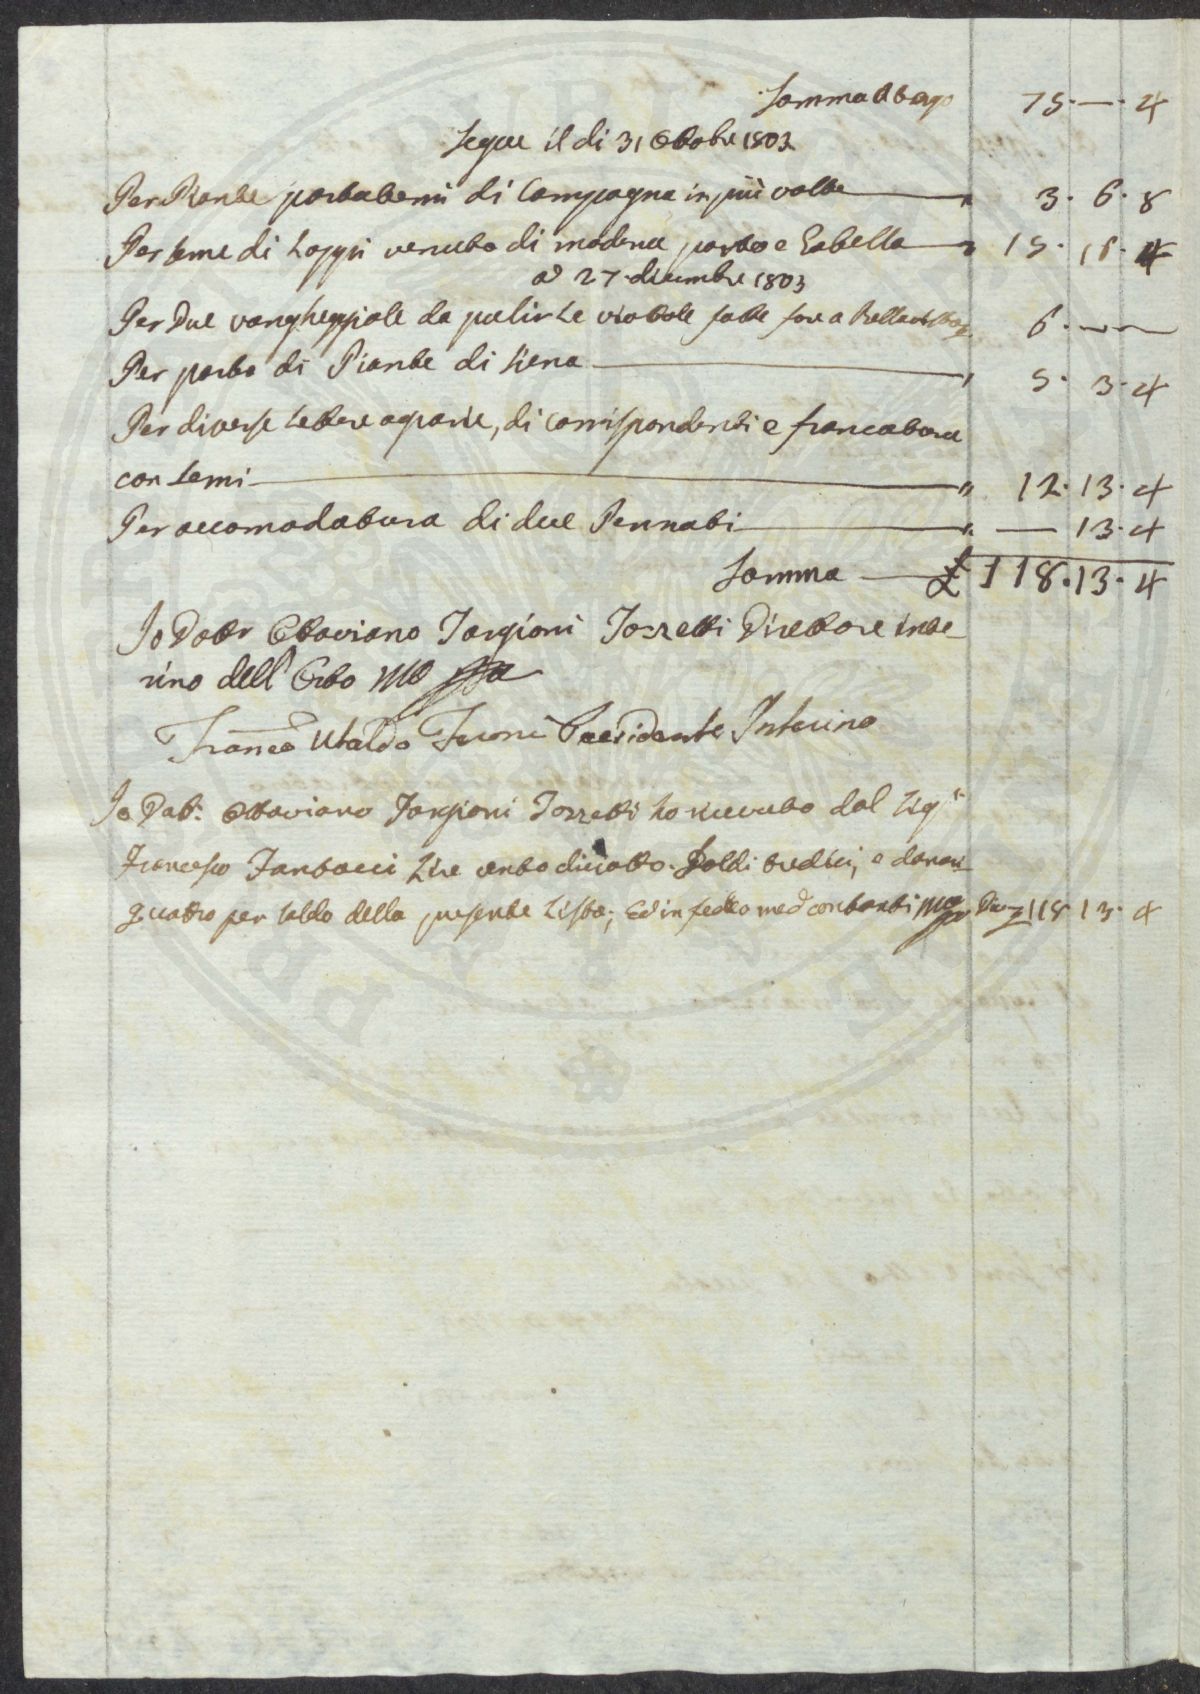 Somma a tergo 75. — . 4
Segue il di 31 Ottobre 1803
Per Piante portatemi di Campagna in più volte — " 3. 6. 8
Per seme di Loppi venuto di modena porto e Gabella — " 15. 16. 4
a' 27. dicembre 1803
Per Due vangheggiole da pulir le viottole fatte fare a 6. — —
Per porto di Piante di Siena — " 5. 3. 4
Per diverse Lettere agrarie, di corrispondenti e francatura
con semi — " 12. 13. 4
Per accomodatura di due Pennati — " — 13. 4
Somma — £ 118. 13. 4
Io Dottr Ottaviano Targioni Tozzetti Direttore inte
rino dell'Orto Mo ppa
Franco Ubaldo Feroni Presidente Interino
Io Dott. Ottaviano Targioni Tozzetti ho ricevuto dal Sigr
Francesco Lire cento diciotto. Soldi tredici, e danari
quattro per saldo della presente Lista; Ed in fede mo med contanti Mo ppa 118. 13. 4